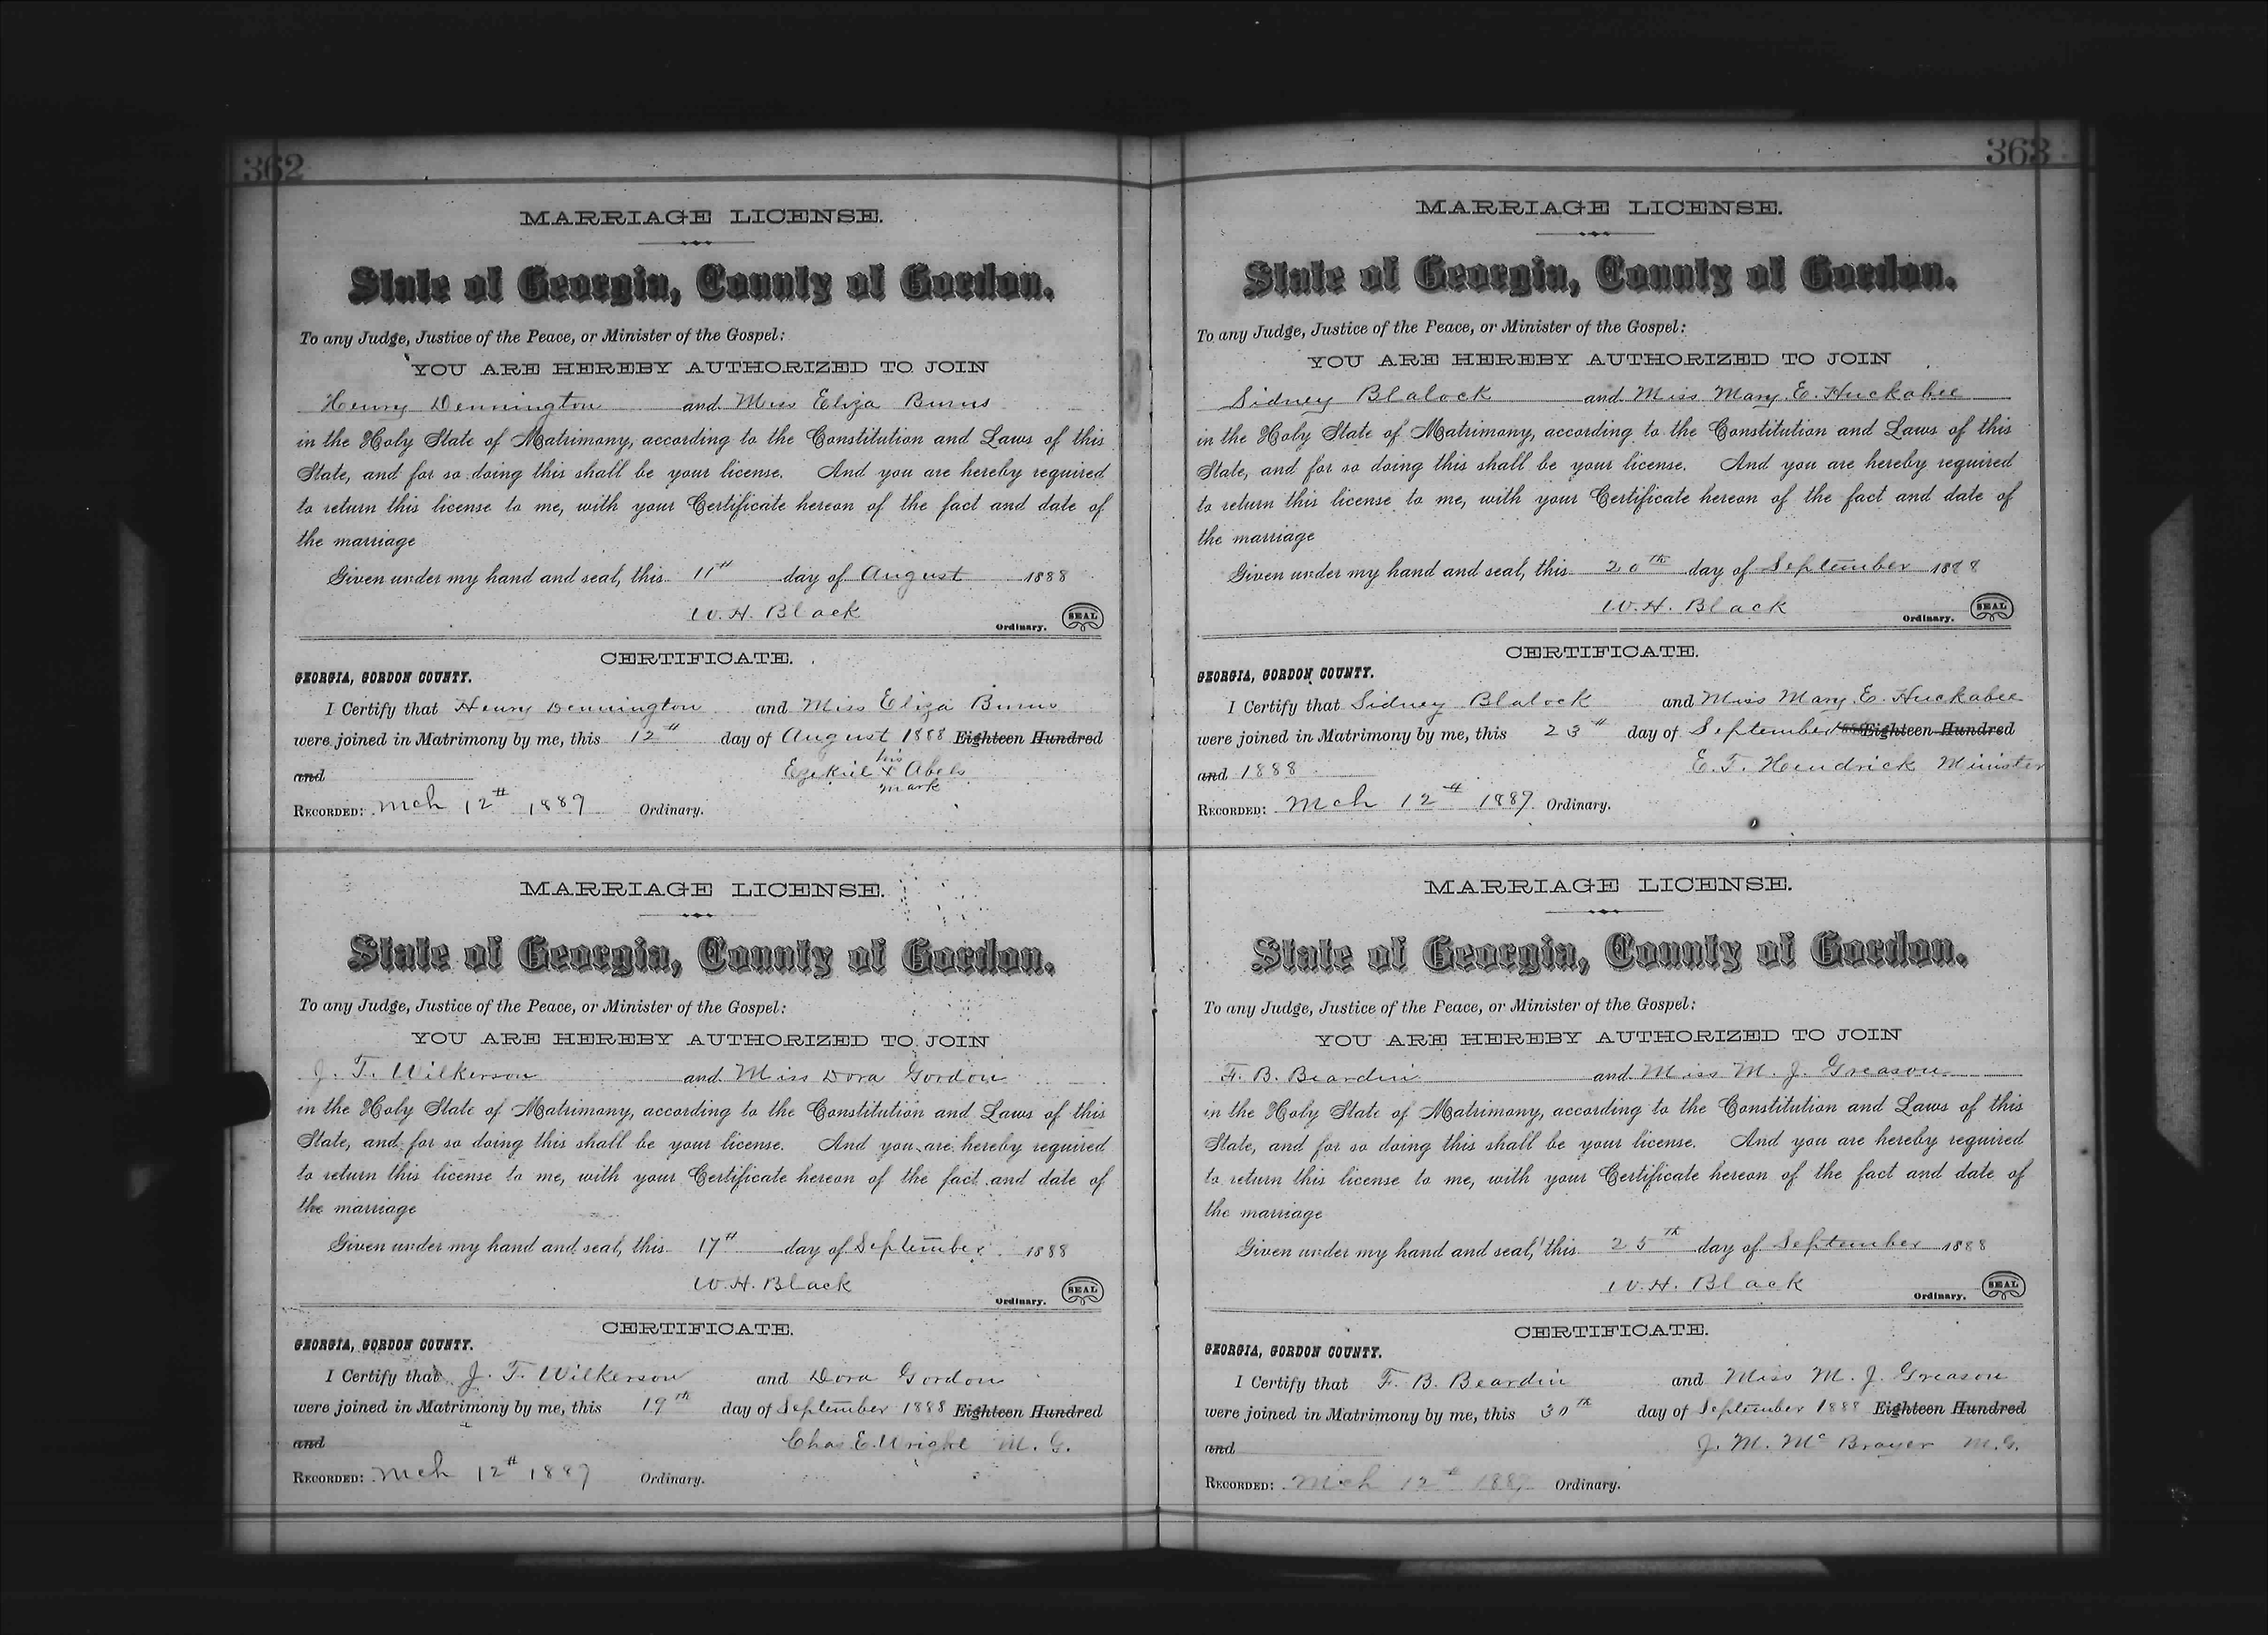 362
MARRIAGE LICENSE.
State of Georgia, County of Gordon.
To any Judge, Justice of the Peace, or Minister of the Gospel:
YOU ARE HEREBY AUTHORIZED TO JOIN
Henry Dennington and Miss Eliza Burns
in the Holy State of Matrimony, according to the Constitution and Laws of this
State, and for so doing this shall be your license. And you are hereby required
to return this license to me, with your Certificate hereon of the fact and date of
the marriage
Given under my hand and seal, this 11th day of August 1888
W. H. Black
Ordinary. SEAL
CERTIFICATE.
GEORGIA, GORDON COUNTY.
I Certify that Henry Dennington and Miss Eliza Burns
were joined in Matrimony by me, this 12th day of August 1888 Eighteen Hundred
his
and Ezekiel X Abels
mark
RECORDED: Mch 12th 1889 Ordinary.
MARRIAGE LICENSE.
State of Georgia, County of Gordon.
To any Judge, Justice of the Peace, or Minister of the Gospel:
YOU ARE HEREBY AUTHORIZED TO JOIN
J. T. Wilkerson and Miss Dora Gordon
in the Holy State of Matrimony, according to the Constitution and Laws of this
State, and for so doing this shall be your license. And you are hereby required
to return this license to me, with your Certificate hereon of the fact and date of
the marriage
Given under my hand and seal, this 17th day of September 1888
W. H. Black
Ordinary. SEAL
CERTIFICATE.
GEORGIA, GORDON COUNTY.
I Certify that J. T. Wilkerson and Dora Gordon
were joined in Matrimony by me, this 19th day of September 1888 Eighteen Hundred
and Chas E. Wright M. G.
RECORDED: Mch 12th 1889 Ordinary.
363
MARRIAGE LICENSE.
State of Georgia, County of Gordon.
To any Judge, Justice of the Peace, or Minister of the Gospel:
YOU ARE HEREBY AUTHORIZED TO JOIN
Sidney Blalock and Miss Mary E. Huckabee
in the Holy State of Matrimony, according to the Constitution and Laws of this
State, and for so doing this shall be your license. And you are hereby required
to return this license to me, with your Certificate hereon of the fact and date of
the marriage
Given under my hand and seal, this 20th day of September 1888
W. H. Black
Ordinary. SEAL
CERTIFICATE.
GEORGIA, GORDON COUNTY.
I Certify that Sidney Blalock and Miss Mary E. Huckabee
were joined in Matrimony by me, this 23th day of September 1888 Eighteen Hundred
and 1888 E. T. Hendrick Minister
RECORDED: Mch 12th 1889 Ordinary.
MARRIAGE LICENSE.
State of Georgia, County of Gordon.
To any Judge, Justice of the Peace, or Minister of the Gospel:
YOU ARE HEREBY AUTHORIZED TO JOIN
F. B. Beardin and Miss M. J. Greason
in the Holy State of Matrimony, according to the Constitution and Laws of this
State, and for so doing this shall be your license. And you are hereby required
to return this license to me, with your Certificate hereon of the fact and date of
the marriage
Given under my hand and seal, this 25th day of September 1888
W. H. Black
Ordinary. SEAL
CERTIFICATE.
GEORGIA, GORDON COUNTY.
I Certify that F. B. Beardin and Miss M. J. Greason
were joined in Matrimony by me, this 30th day of September 1888 Eighteen Hundred
and J. M. Mc Brayer M. G.
RECORDED: Mch 12th 1889 Ordinary.